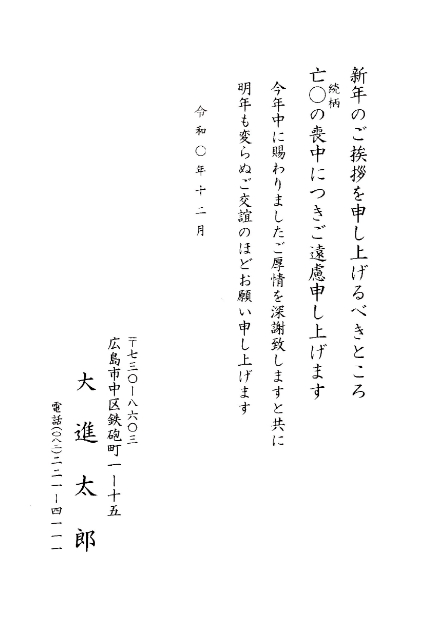 新年のご挨拶を申し上げるべきところ
続柄
亡〇の喪中につきご遠慮申し上げます
今年中に賜わりましたご厚情を深謝致しますと共に
明年も変らぬご交誼のほどお願い申し上げます
令和〇年十二月
〒七三〇ー八六〇三
広島市中区鉄砲町一ー十五
大進太郎
電話(〇八二)二二一ー四一一一